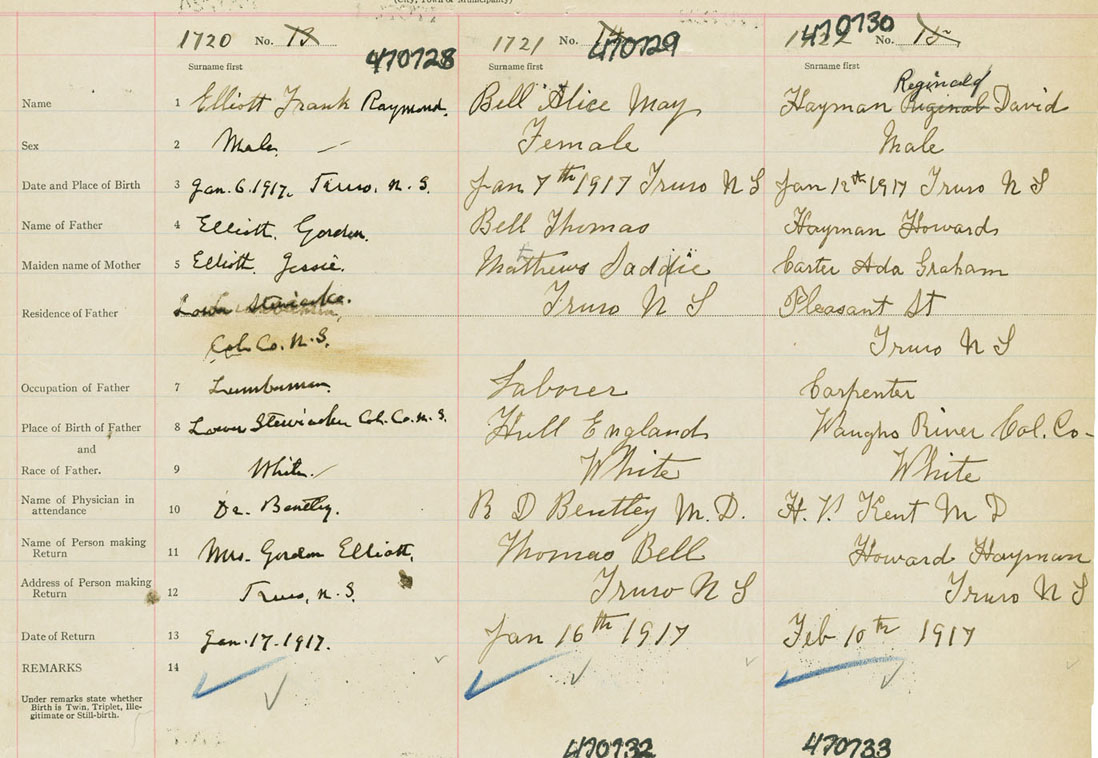 (City, Town or Municipality)
1720 No. 13 470728 1721 No. 470729 No. 15 470730
Surname first Surname first Surname first
Reginald
Name 1 Elliott Frank Raymond. Bell Alice May Hayman Riginal David
Sex 2 Male. — Female Male
Date and Place of Birth 3 Jan. 6. 1917. Truro. N. S. Jan 7th 1917 Truro N S Jan 12th 1917 Truro N S
Name of Father 4 Elliott. Gordon. Bell Thomas Hayman Howard
Maiden name of Mother 5 Elliott. Jessie. Matthews Saddie Carter Ada Graham
Residence of Father Lower Stewiacke. Truro N S Pleasant St
Col. Co. N. S. Truro N S
Occupation of Father 7 Lumberman. Laborer Carpenter
Place of Birth of Father 8 Lower Stewiacke Col. Co. N. S. Hull England Waughs River Col. Co-
and
Race of Father. 9 White. White White
Name of Physician in
attendance 10 Dr. Bentley. R D Bentley M. D. H. V. Kent M D
Name of Person making
Return 11 Mrs. Gordon Elliott, Thomas Bell Howard Hayman
Address of Person making
Return 12 Truro, N. S. Truro N S Truro N S
Date of Return 13 Jan. 17. 1917. Jan 16th 1917 Feb 10th 1917
REMARKS 14
Under remarks state whether
Birth is Twin, Triplet, Ille-
gitimate or Still-birth.
470732 470733